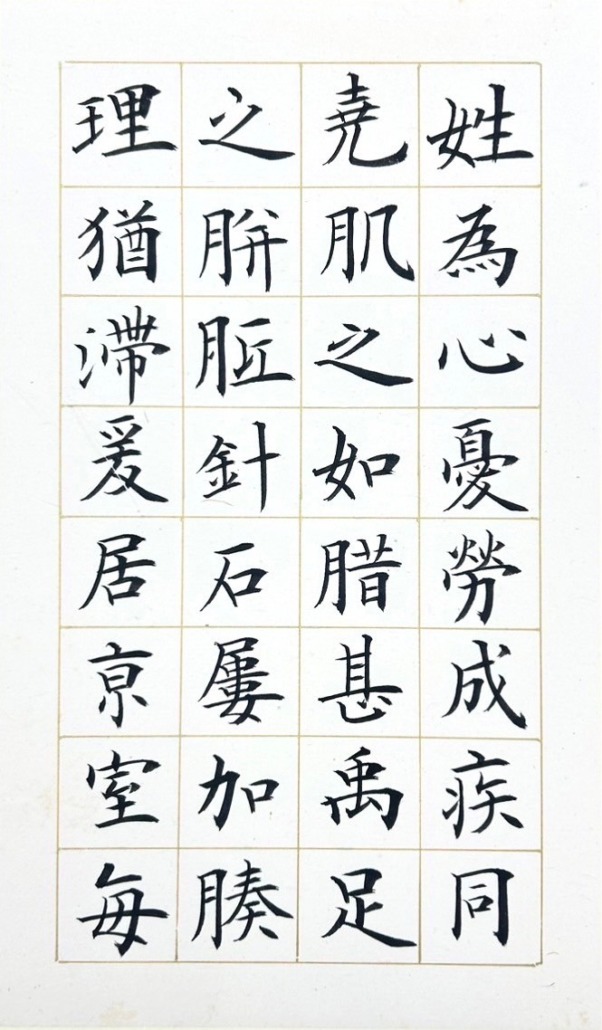 姓為心憂勞成疾同
堯肌之如腊甚禹足
之胼胝針石屢加腠
理猶滯爰居京室每